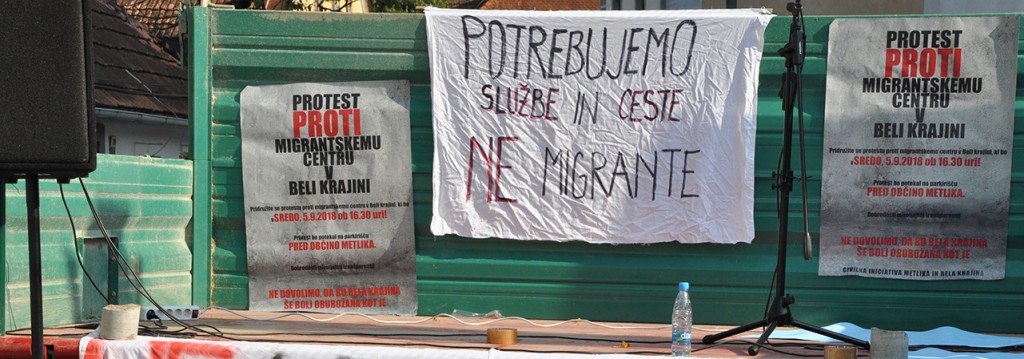 PROTEST
PROTI
MIGRANTSKEMU
CENTRU
V
BELI KRAJINI
Pridružite se protestu proti migrantskemu centru v Beli krajini, ki bo
v SREDO, 5.9.2018 ob 16.30 uri!
Protest bo potekal na parkirišču
PRED OBČINO METLIKA.
NE DOVOLIMO, DA BO BELA KRAJINA
ŠE BOLJ OBUBOŽANA KOT JE
POTREBUJEMO
SLUŽBE IN CESTE
NE MIGRANTE
PROTEST
PROTI
MIGRANTSKEMU
CENTRU
V
BELI KRAJINI
Pridružite se protestu proti migrantskemu centru v Beli krajini, ki bo
v SREDO, 5.9.2018 ob 16.30 uri!
Protest bo potekal na parkirišču
PRED OBČINO METLIKA.
NE DOVOLIMO, DA BO BELA KRAJINA
ŠE BOLJ OBUBOŽANA KOT JE
CIVILNA INICIATIVA METLIKA IN BELA KRAJINA